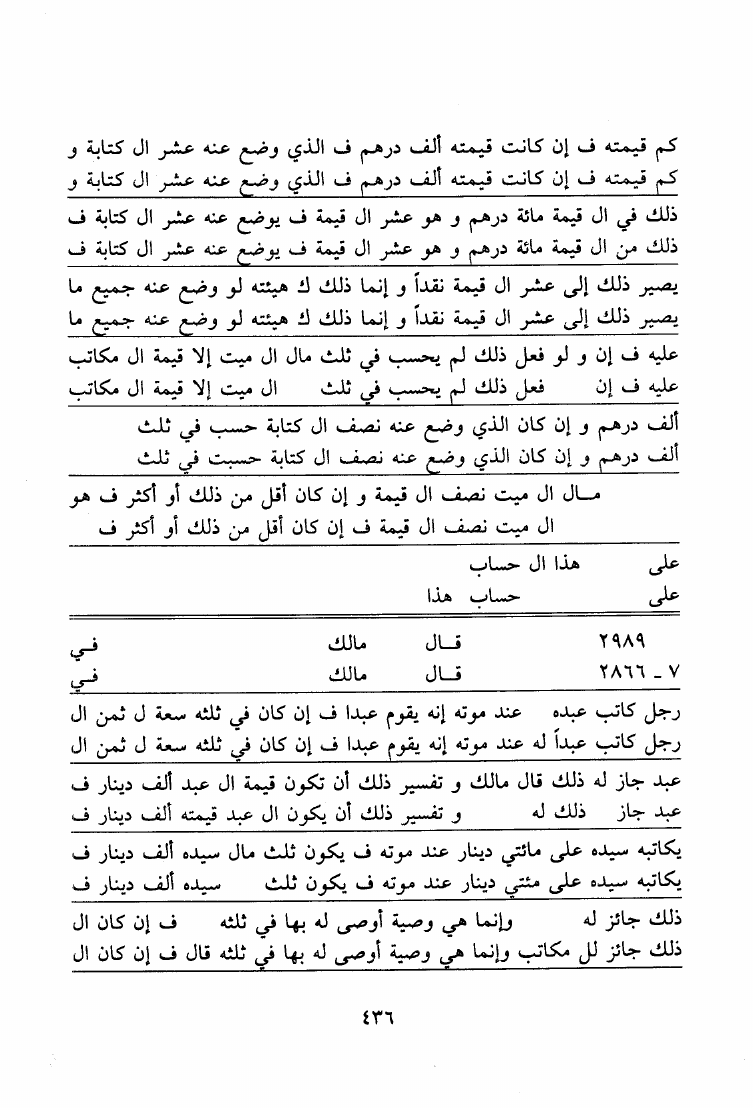 كم قيمته ف إن كانت قيمته ألف درهم ف الذي وضع عنه عشر ال كتابة و
كم قيمته ف إن كانت قيمته ألف درهم ف الذي وضع عنه عشر ال كتابة و
ذلك في ال قيمة مائة درهم و هو عشر ال قيمة ف يوضع عنه عشر ال كتابة ف
ذلك من ال قيمة مائة درهم و هو عشر ال قيمة ف يوضع عنه عشر ال كتابة ف
يصير ذلك إلى عشر ال قيمة نقداً و إنما ذلك ك هيئته لو وضع عنه جميع ما
يصير ذلك إلى عشر ال قيمة نقداً و إنما ذلك ك هيئته لو وضع عنه جميع ما
عليه ف إن و لو فعل ذلك لم يحسب في ثلث مال ال ميت إلا قيمة ال مكاتب
عليه ف إن فعل ذلك لم يحسب في ثلث ال ميت إلا قيمة ال مكاتب
ألف درهم و إن كان الذي وضع عنه نصف ال كتابة حسب في ثلث
ألف درهم و إن كان الذي وضع عنه نصف ال كتابة حسبت في ثلث
مـال ال ميت نصف ال قيمة و إن كان أقل من ذلك أو أكثر ف هو
ال ميت نصف ال قيمة ف إن كان أقل من ذلك أو أكثر ف
على هذا ال حساب
على حساب هذا
٢٩٨٩ قـال مالك فـي
٧ - ٢٨٦٦ قـال مالك فـي
رجل كاتب عبده عند موته إنه يقوم عبدا ف إن كان في ثلثه سعة ل ثمن ال
رجل كاتب عبداً له عند موته إنه يقوم عبدا ف إن كان في ثلثه سعة ل ثمن ال
عبد جاز له ذلك قال مالك و تفسير ذلك أن تكون قيمة ال عبد ألف دينار ف
عبد جاز ذلك له و تفسير ذلك أن يكون ال عبد قيمته ألف دينار ف
يكاتبه سيده على مائتي دينار عند موته ف يكون ثلث مال سيده ألف دينار ف
يكاتبه سيده على مئتي دينار عند موته ف يكون ثلث سيده ألف دينار ف
ذلك جائز له وإنما هي وصية أوصى له بها في ثلثه ف إن كان ال
ذلك جائز لل مكاتب وإنما هي وصية أوصى له بها في ثلثه قال ف إن كان ال
٤٣٦